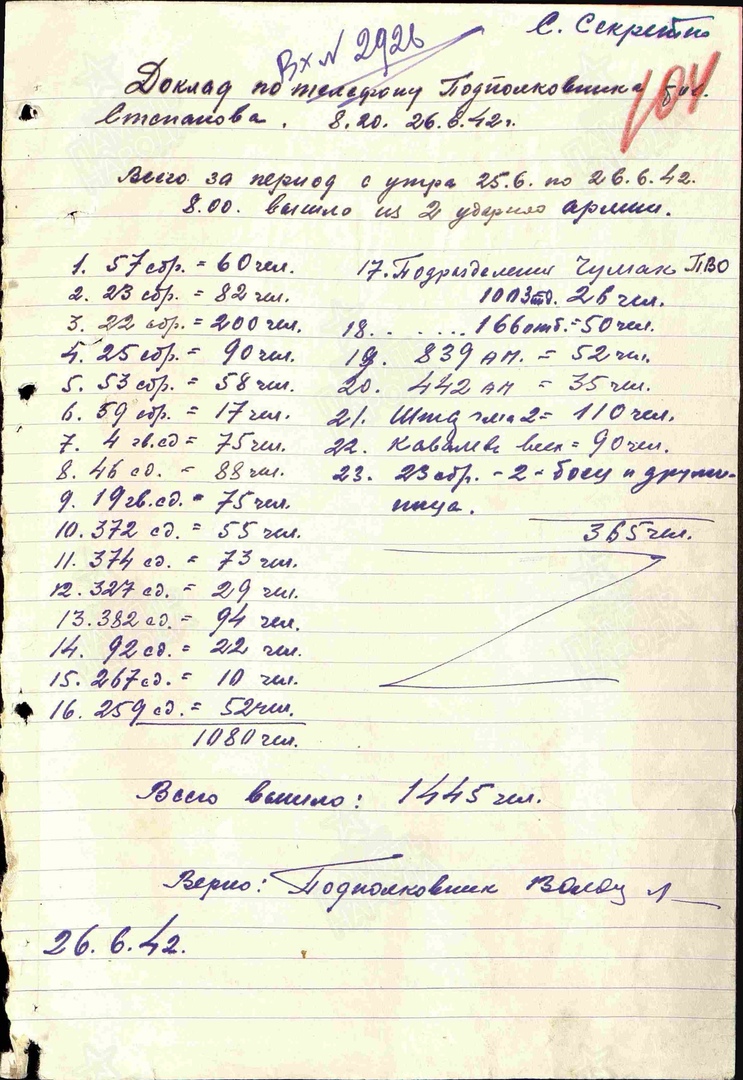 С. Секретно
Вх № 2926
104
Доклад по телефону Подполковника
Степанова. 8.20. 26.6.42г.
Всего за период с утра 25.6. по 26.6.42.
8.00. вышло из 2 ударной армии.
1. 57 сбр. = 60 чел.
2. 23 сбр. = 82 чел.
3. 22 сбр. = 200 чел.
4. 25 сбр. = 90 чел.
5. 53 сбр. = 58 чел.
6. 59 сбр. = 17 чел.
7. 4 гв.сд = 75 чел.
8. 46 сд. = 88 чел.
9. 19 гв.сд. = 75 чел.
10. 372 сд. = 55 чел.
11. 374 сд. = 73 чел.
12. 327 сд. = 29 чел.
13. 382 сд. = 94 чел.
14. 92 сд. = 22 чел.
15. 267 сд. = 10 чел.
16. 259 сд. = 52 чел.
1080 чел.
17. Подразделения ПВО
26 чел.
18. . . . . . 166 = 50 чел.
19. 839 ап. = 52 чел.
20. 442 ап = 35 чел.
21. = 110 чел.
22. = 90 чел.
23. 23 сбр. - 2 - боец и дружин-
ница.
365 чел.
Всего вышло: 1445 чел.
Верно: Подполковник
26.6.42.